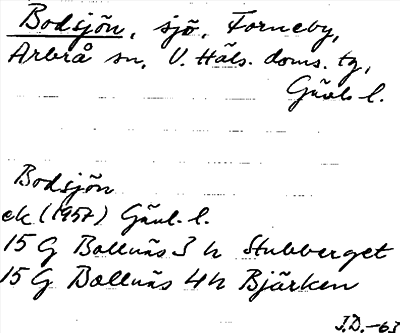 Bodsjön, sjö, Forneby,
Arbrå sn, V. Häls. doms. tg,
Gävl. l.
Bodsjön
ek (1957) Gävl. l.
15 G Bollnäs 3 h Stubberget
15 G Bollnäs 4 h Bjärken
J.D. -63